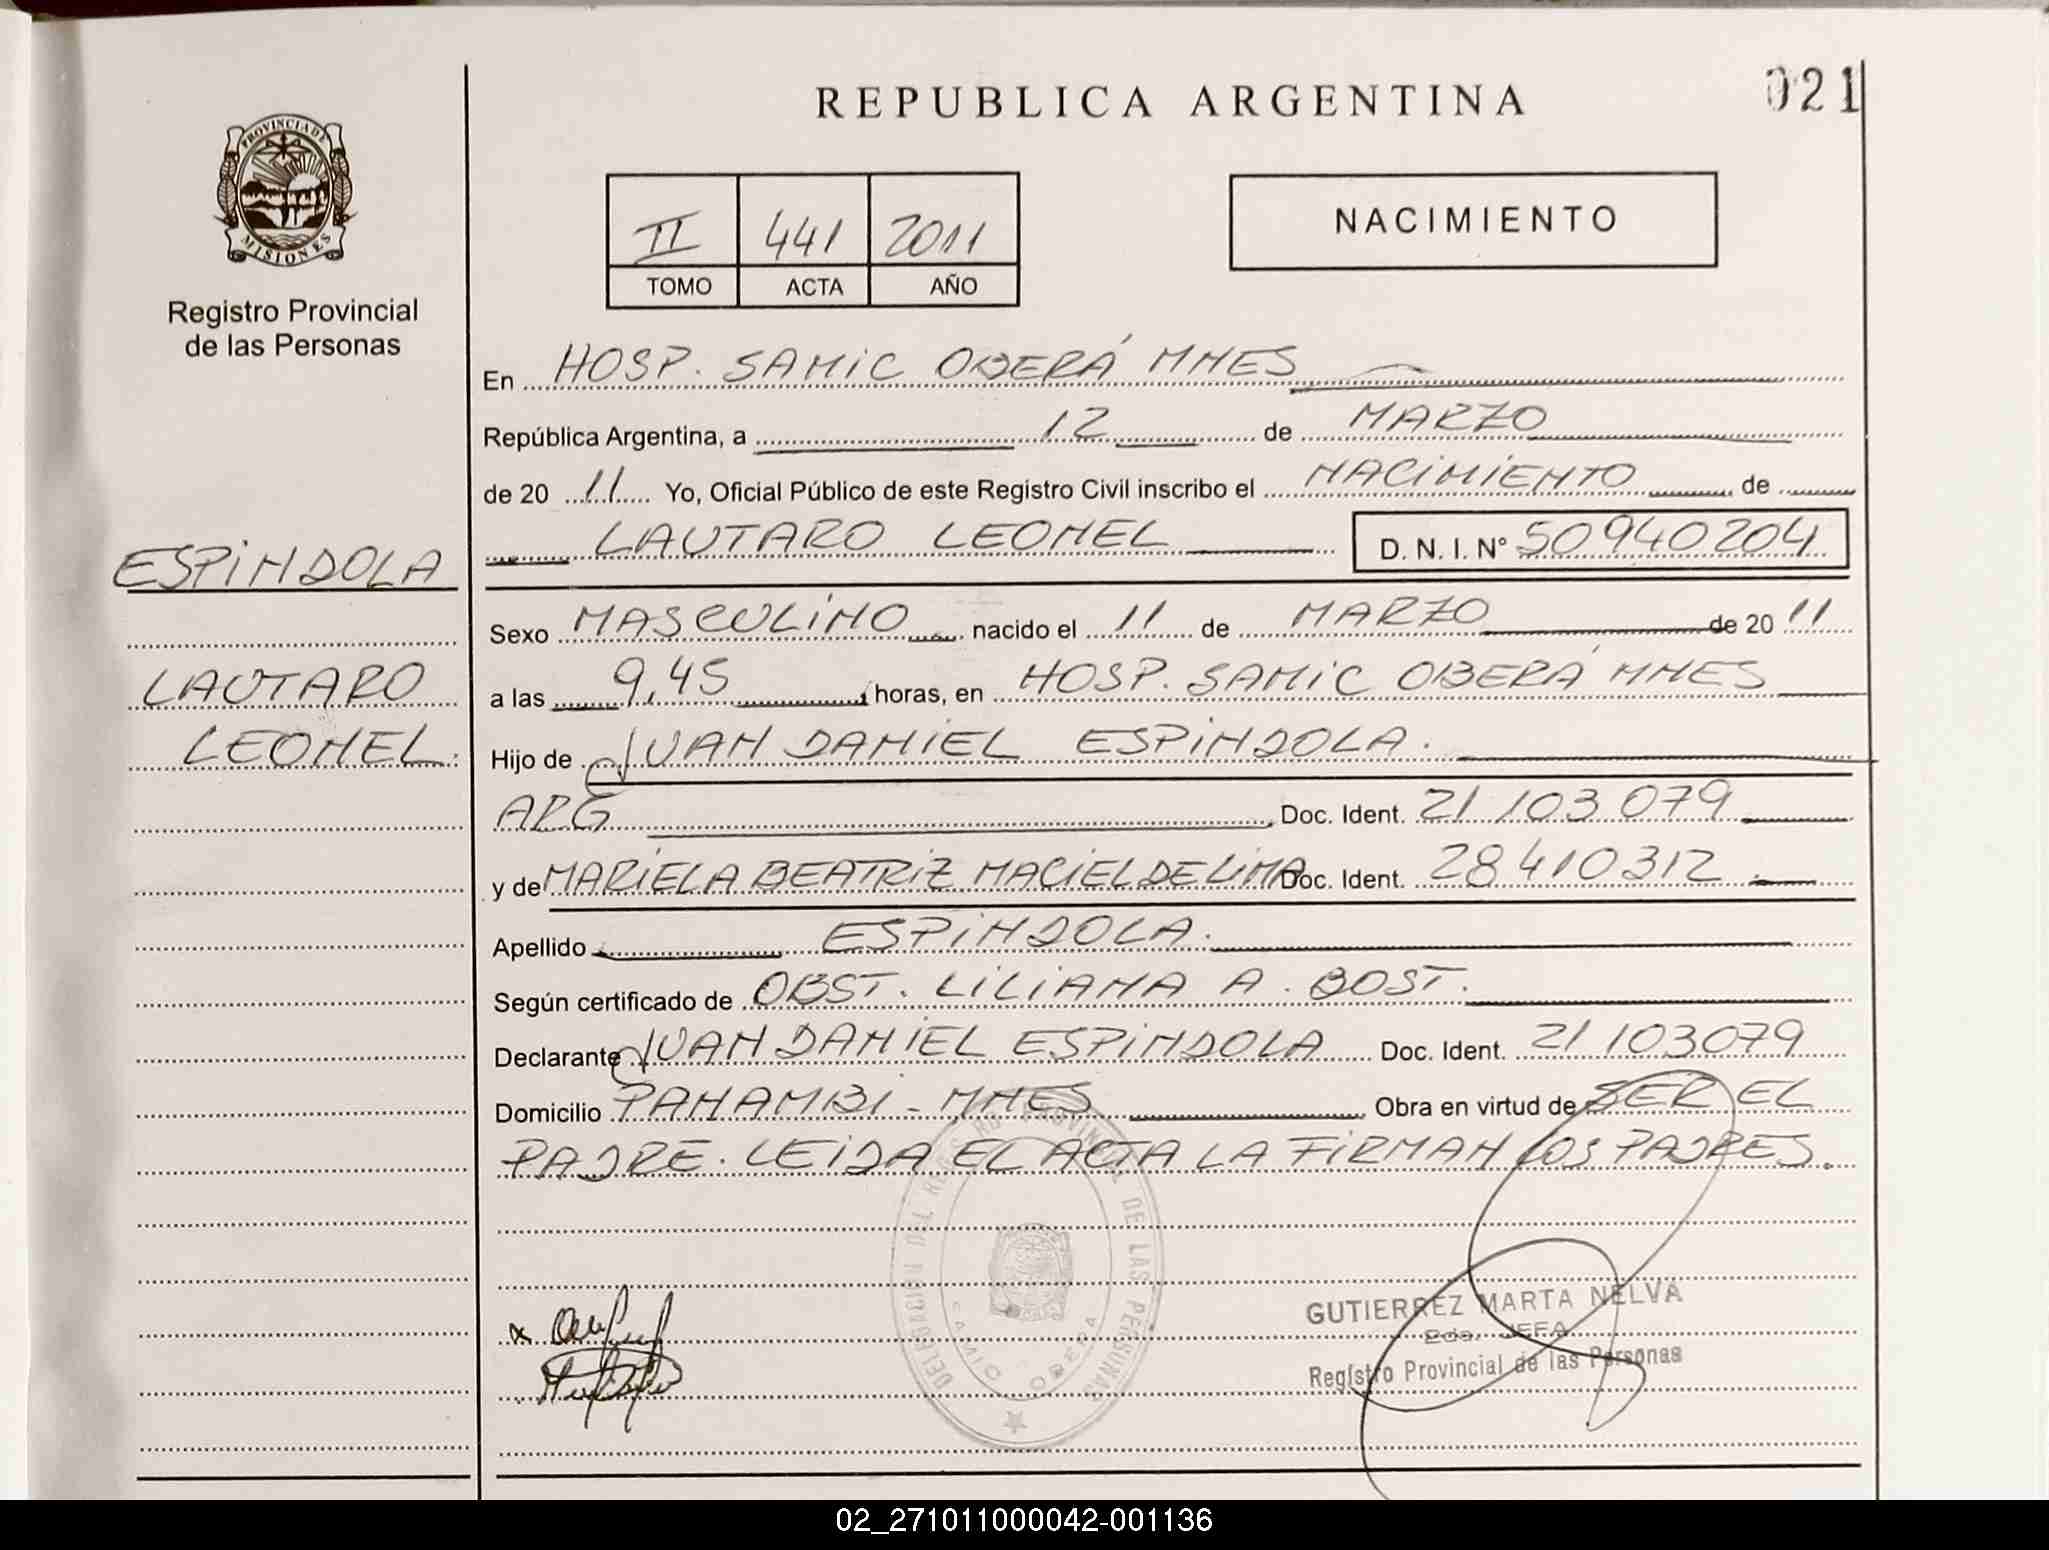 REPUBLICA ARGENTINA
021
PROVINCIA DE
MISIONES
Registro Provincial
de las Personas
II 441 2011
TOMO ACTA AÑO
NACIMIENTO
En HOSP. SAMIC OBERÁ MNES
República Argentina, a 12 de MARZO
de 20 11 Yo, Oficial Público de este Registro Civil inscribo el NACIMIENTO de
LAUTARO LEONEL D. N. I. N° 50940204
ESPINDOLA
LAUTARO
LEONEL.
Sexo MASCULINO nacido el 11 de MARZO de 20 11
a las 9,45 horas, en HOSP. SAMIC OBERÁ MNES
Hijo de JUAN DANIEL ESPINDOLA.
ARG Doc. Ident. 21 103 079
y de MARIELA BEATRIZ MACIEL DE LIMA Doc. Ident. 28 410 312
Apellido ESPINDOLA.
Según certificado de OBST. LILIANA A. BOST.
Declarante JUAN DANIEL ESPINDOLA Doc. Ident. 21 103079
Domicilio PANAMBI - MNES Obra en virtud de SER EL
PADRE. LEIDA EL ACTA LA FIRMAN LOS PADRES.
DELEGACION DEL REGISTRO PROVINCIAL DE LAS PERSONAS
OBERA
GUTIERREZ MARTA NELVA
2da. JEFA
Registro Provincial de las Personas
02_271011000042-001136